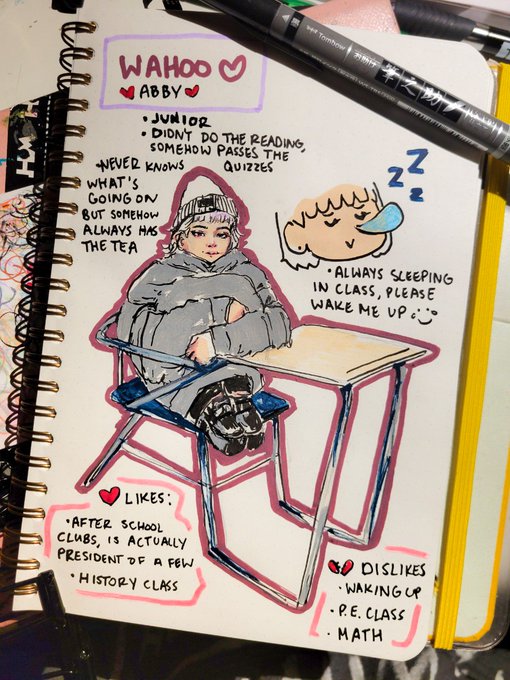 WAHOO
ABBY
• JUNIOR
• DIDN'T DO THE READING,
SOMEHOW PASSES THE
QUIZZES
• NEVER KNOWS
WHAT'S
GOING ON
BUT SOMEHOW
ALWAYS HAS
THE TEA
Z
Z
Z
• ALWAYS SLEEPING
IN CLASS, PLEASE
WAKE ME UP
LIKES:
• AFTER SCHOOL
CLUBS, IS ACTUALLY
PRESIDENT OF A FEW
• HISTORY CLASS
DISLIKES
• WAKING UP
• P.E. CLASS
• MATH
Tombow
筆之助